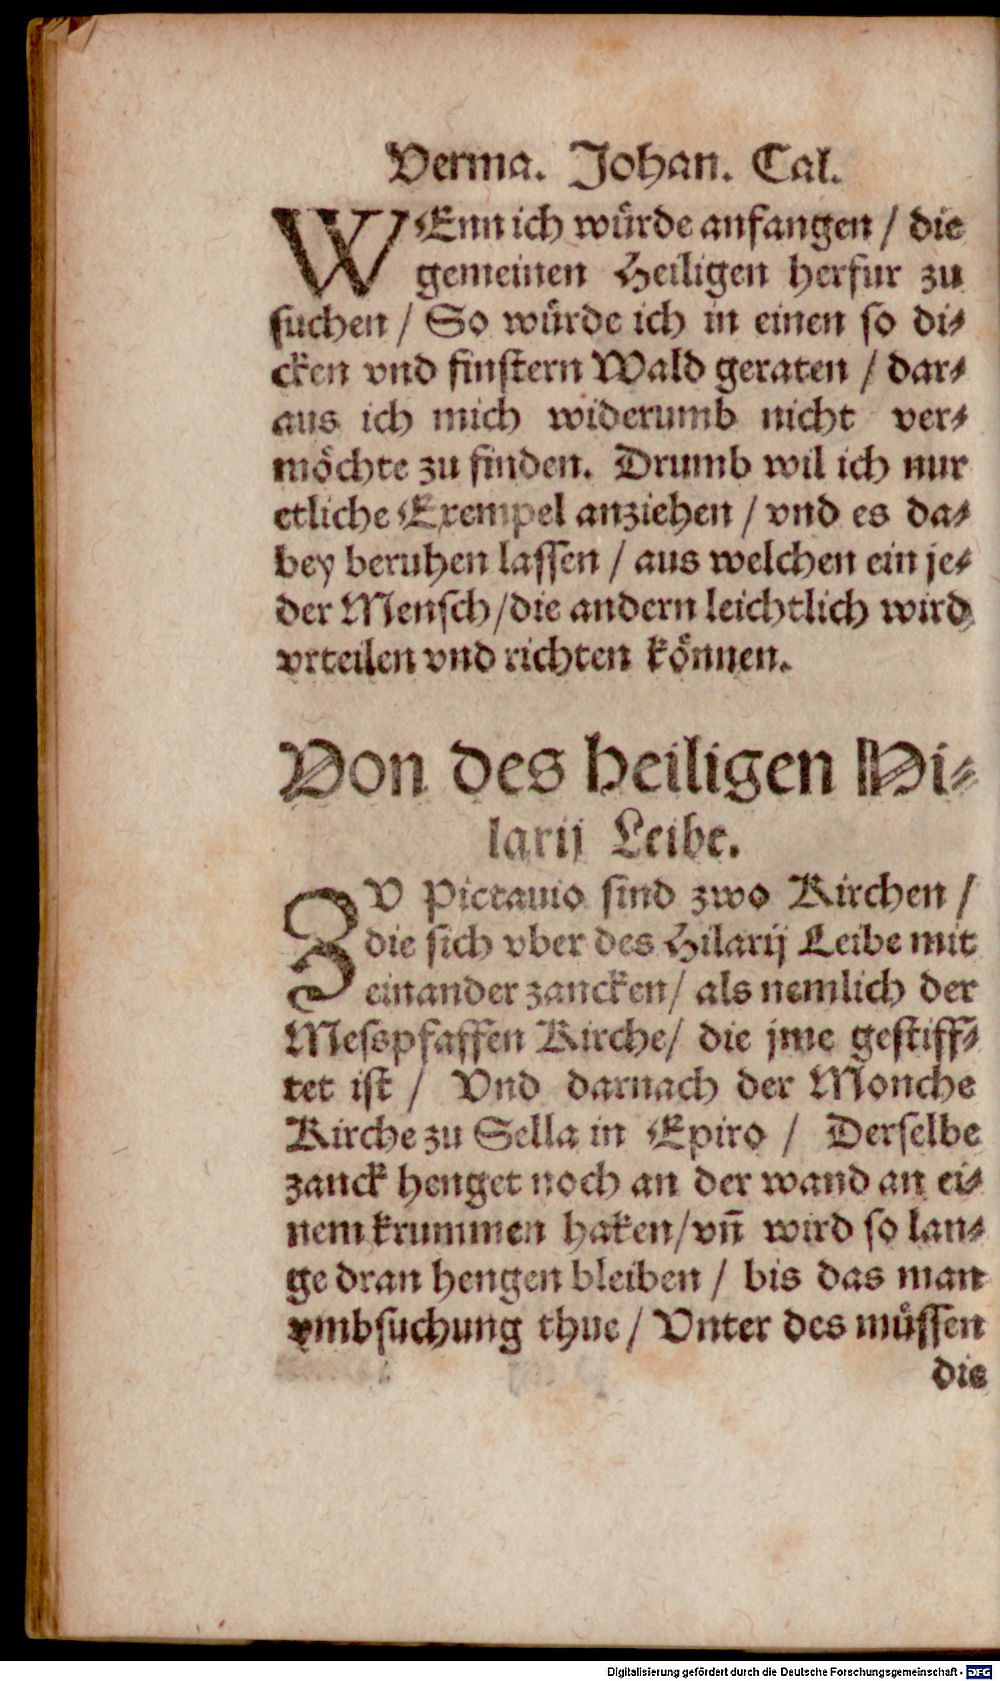 Verma. Johan. Cal.
WEnn ich würde anfangen / die
gemeinen Heiligen herfur zu
suchen / So würde ich in einen so di⸗
cken vnd finstern Wald geraten / dar⸗
aus ich mich widerumb nicht ver⸗
möchte zu finden. Drumb wil ich nur
etliche Exempel anziehen / vnd es da⸗
bey beruhen lassen / aus welchen ein je⸗
der Mensch/die andern leichtlich wird
vrteilen vnd richten können.
Von des heiligen Hi⸗
larij Leibe.
ZV Pictauio sind zwo Kirchen /
die sich vber des Hilarij Leibe mit
einander zancken/ als nemlich der
Messpfaffen Kirche/ die jme gestiff⸗
tet ist / Vnd darnach der Monche
Kirche zu Sella in Epiro / Derselbe
zanck henget noch an der wand an ei⸗
nem krummen haken/vñ wird so lan⸗
ge dran hengen bleiben / bis das man
vmbsuchung thue / Vnter des müssen
die
Digitalisierung gefördert durch die Deutsche Forschungsgemeinschaft - DFG